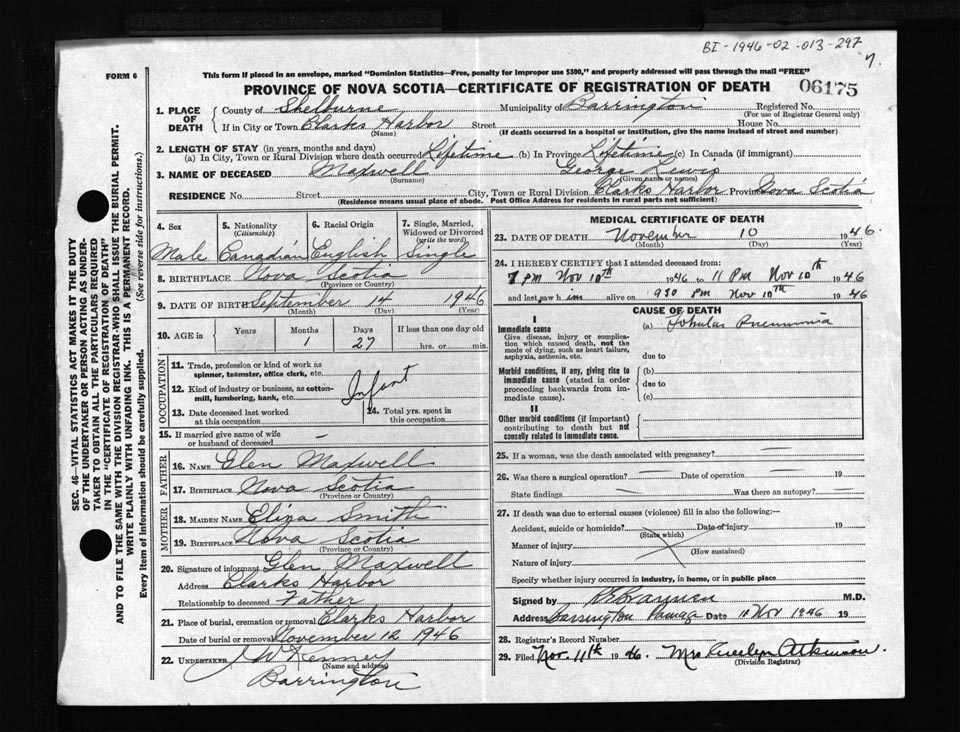 BI-1946-02-013-297
7.
FORM 6
This form if placed in an envelope, marked "Dominion Statistics—Free, penalty for improper use $300," and properly addressed will pass through the mail "FREE"
PROVINCE OF NOVA SCOTIA—CERTIFICATE OF REGISTRATION OF DEATH
06175
1. PLACE OF DEATH
County of Shelburne Municipality of Barrington Registered No.
(For use of Registrar General only)
If in City or Town Clarks Harbor Street House No.
(Name) (If death occurred in a hospital or institution, give the name instead of street and number)
2. LENGTH OF STAY (in years, months and days)
(a) In City, Town or Rural Division where death occurred Lifetime (b) In Province Lifetime (c) In Canada (if immigrant)
3. NAME OF DECEASED Maxwell George Lewis
(Surname) (Given name or names)
RESIDENCE No. Street City, Town or Rural Division Clarks Harbor Province Nova Scotia
(Residence means usual place of abode. Post Office Address for residents in rural parts not sufficient)
SEC. 46—VITAL STATISTICS ACT MAKES IT THE DUTY
OF THE UNDERTAKER OR PERSON ACTING AS UNDER-
TAKER TO OBTAIN ALL THE PARTICULARS REQUIRED
IN THE "CERTIFICATE OF REGISTRATION OF DEATH"
AND TO FILE THE SAME WITH THE DIVISION REGISTRAR WHO SHALL ISSUE THE BURIAL PERMIT.
WRITE PLAINLY WITH UNFADING INK. THIS IS A PERMANENT RECORD.
Every item of information should be carefully supplied. (See reverse side for instructions.)
4. Sex 5. Nationality 6. Racial Origin 7. Single, Married,
(Citizenship) Widowed or Divorced
(write the word)
Male Canadian English Single
8. BIRTHPLACE Nova Scotia
(Province or Country)
9. DATE OF BIRTH September 14 1946
(Month) (Day) (Year)
10. AGE in Years Months Days If less than one day old
1 27 hrs. or min.
OCCUPATION
11. Trade, profession or kind of work as
spinner, teamster, office clerk, etc.
12. Kind of industry or business, as cotton-
mill, lumbering, bank, etc.
Infant
13. Date deceased last worked 14. Total yrs. spent in
at this occupation this occupation
15. If married give name of wife
or husband of deceased —
FATHER
16. NAME Glen Maxwell
17. BIRTHPLACE Nova Scotia
(Province or Country)
MOTHER
18. MAIDEN NAME Eliza Smith
19. BIRTHPLACE Nova Scotia
(Province or Country)
20. Signature of informant Glen Maxwell
Address Clarks Harbor
Relationship to deceased Father
21. Place of burial, cremation or removal Clarks Harbor
Date of burial or removal November 12 1946
22. UNDERTAKER J W Kenney
(Name and address)
Barrington
MEDICAL CERTIFICATE OF DEATH
23. DATE OF DEATH November 10 1946.
(Month) (Day) (Year)
24. I HEREBY CERTIFY that I attended deceased from:
7 PM Nov 10th 1946 to 11 PM Nov 10th 1946
and last saw him alive on 930 PM Nov 10th 1946
CAUSE OF DEATH
I
Immediate cause (a) Lobular Pneumonia
Give disease, injury or complica-
tion which caused death, not the
mode of dying, such as heart failure,
asphyxia, asthenia, etc. due to
Morbid conditions, if any, giving rise to (b)
immediate cause (stated in order due to
proceeding backwards from im-
mediate cause). (c)
II
Other morbid conditions (if important)
contributing to death but not
causally related to immediate cause.
25. If a woman, was the death associated with pregnancy? —
26. Was there a surgical operation? — Date of operation — 19
State findings — Was there an autopsy? —
27. If death was due to external causes (violence) fill in also the following:—
Accident, suicide or homicide? Date of injury 19
(State which)
Manner of injury
(How sustained)
Nature of injury
Specify whether injury occurred in industry, in home, or in public place
Signed by M.D.
Address Barrington Passage Date 11 Nov 1946 19
28. Registrar's Record Number
29. Filed Nov. 11th 1946. Mrs Evelyn Atkinson.
(Division Registrar)